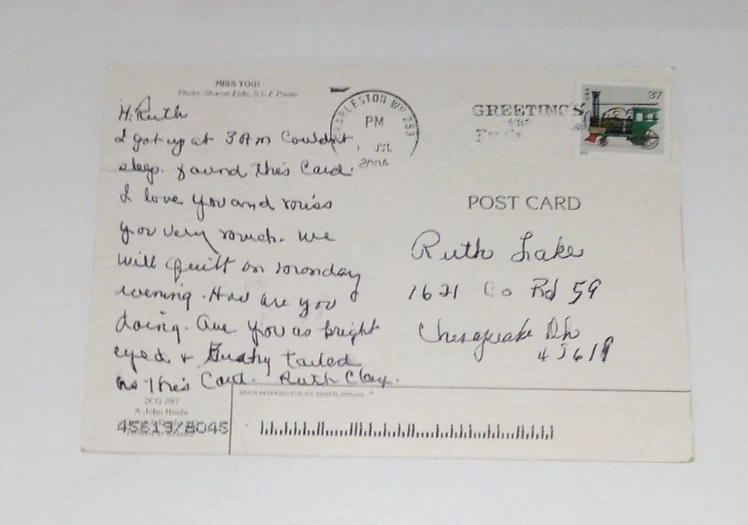 MISS YOU!
Photo: Sharon Eide, S & E Photo
Hi Ruth
I got up at 3 am Couldn't
sleep. found this Card.
I love you and miss
you very much. We
will quilt on monday
evening. How are you
doing. are you as bright
eyed & Bushy tailed
as this Card. Ruth Clay.
2CQ 297
A John Hinde
45619/8045
CHARLESTON WV 253
PM
JUL
2004
GREETINGS
37
POST CARD
Ruth Lake
1621 Co Rd 59
Chesapeake Oh
45619
SPACE RESERVED FOR U.S. POSTAL SERVICE